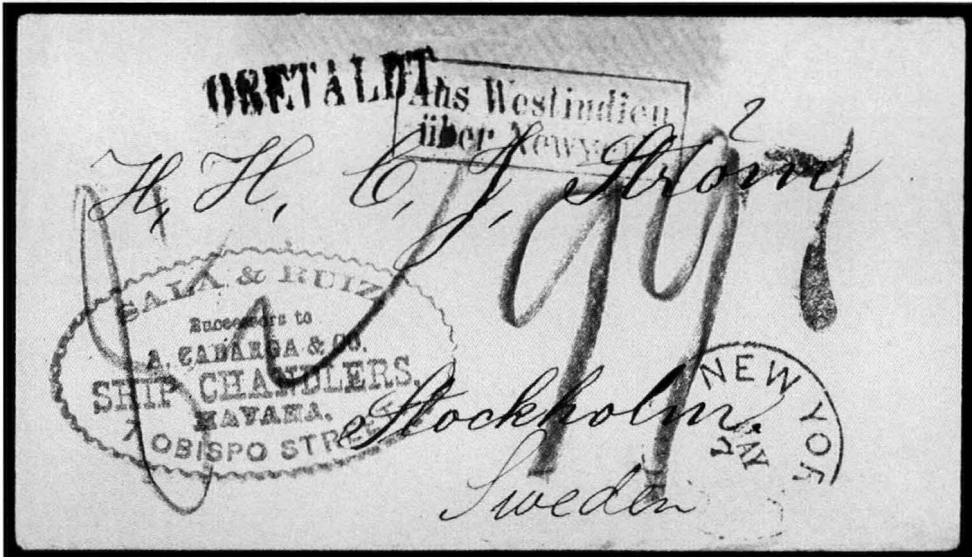 OBETALDT.
Aus Westindien
über Newyork
H, H, C, J, Ström
99
7
SALA & RUIZ
Successors to
A. CABARGA & CO.
SHIP CHANDLERS,
HAVANA.
OBISPO STREET
Stockholm.
Sweden
NEW YOR
MAY